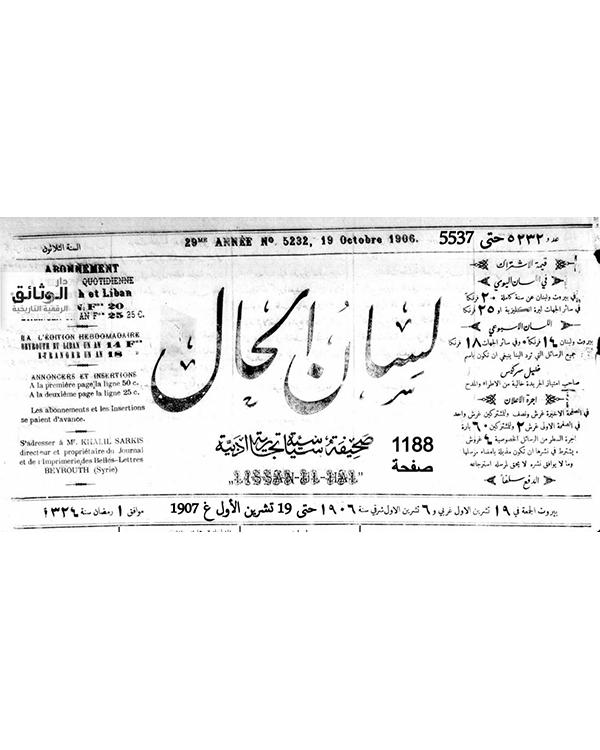 السنة الثلاثون
29ME ANNÉE No. 5232, 19 Octobre 1906.
عدد ٥٢٣٢ حتى 5537
ABONNEMENT
QUOTIDIENNE
et Liban
FS 20
AN FS 25 25 c.
دار
الوثائق
الرقمية التاريخية
L'ÉDITION HEBDOMADAIRE
BEYROUTH ET LIBAN UN AN 14 Fs
ETRANGER UN AN 18
ANNONCES ET INSERTIONS
A la première page la ligne 50 c.
A la deuxième page la ligne 25 c.
Les abonnements et les Insertions
se paient d'avance.
S'adresser à Mr. KHALIL SARKIS
directeur et propriétaire du Journal
et de l'Imprimerie des Belles-Lettres
BEYROUTH (Syrie)
لسان الحال
صحيفة سياسية تجارية ادبية
"LISSAN-UL-HAL"
1188
صفحة
قيمة الاشتراك
في اللسان اليومي
في بيروت ولبنان عن سنة كاملة ٢٠ فرنكا
في سائر الجهات ليرة انكليزية او ٢٥ فرنكا
اللسان الاسبوعي
في بيروت ولبنان ١٤ فرنكا وفي سائر الجهات ١٨ فرنكا
جميع الرسائل التي ترد الينا ينبغي ان تكون باسم
خليل سركيس
صاحب امتياز الجريدة خالية من الاطراء والمدح
اجرة الاعلان
في الصفحة الاخيرة غرش ونصف وللمشتركين غرش واحد
في الصفحة الاولى غرش ٣ وللمشتركين ٦٠ بارة
اجرة السطر من الرسائل الخصوصية ٤ غروش
يشترط في نشرها ان تكون مذيلة بامضاء مرسلها
وما لا يوافق نشره لا يحق لمرسله استرجاعه
الدفع سلفاً
بيروت الجمعة في ١٩ تشرين الاول غربي و ٦ تشرين الاول شرقي سنة ١٩٠٦ حتى 19 تشرين الأول غ 1907 موافق ١ رمضان سنة ١٣٢٤